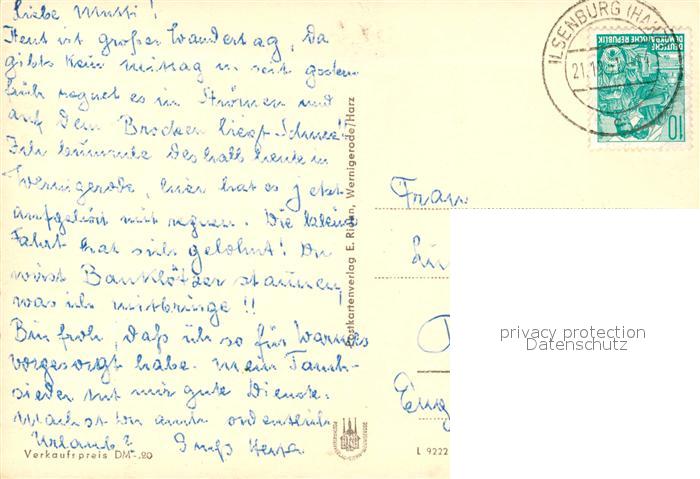 Liebe Mutti!
Heut ist großer Wandertag, Da
gibts kein Mittag u. seit gestern
früh regnet es in Strömen und
auf dem Brocken liegt Schnee!!
Ich bummele deshalb heute in
Wernigerode, hier hat es jetzt
aufgehört mit regnen. Die kleine
Fahrt hat sich gelohnt! Du
wirst Bauklötzer staunen,
was ich mitbringe!!
Bin froh, daß ich so für Warmes
vorgesorgt habe. Mein Tauch-
sieder tut mir gute Dienste.
Machst Du auch ordentlich
Urlaub? Gruß
Verkaufspreis DM -.20
Postkartenverlag E. Riehn, Wernigerode/Harz
L 9222
ILSENBURG (HARZ)
21.1
DEUTSCHE
DEMOKRATISCHE REPUBLIK
10
Frau
privacy protection
Datenschutz